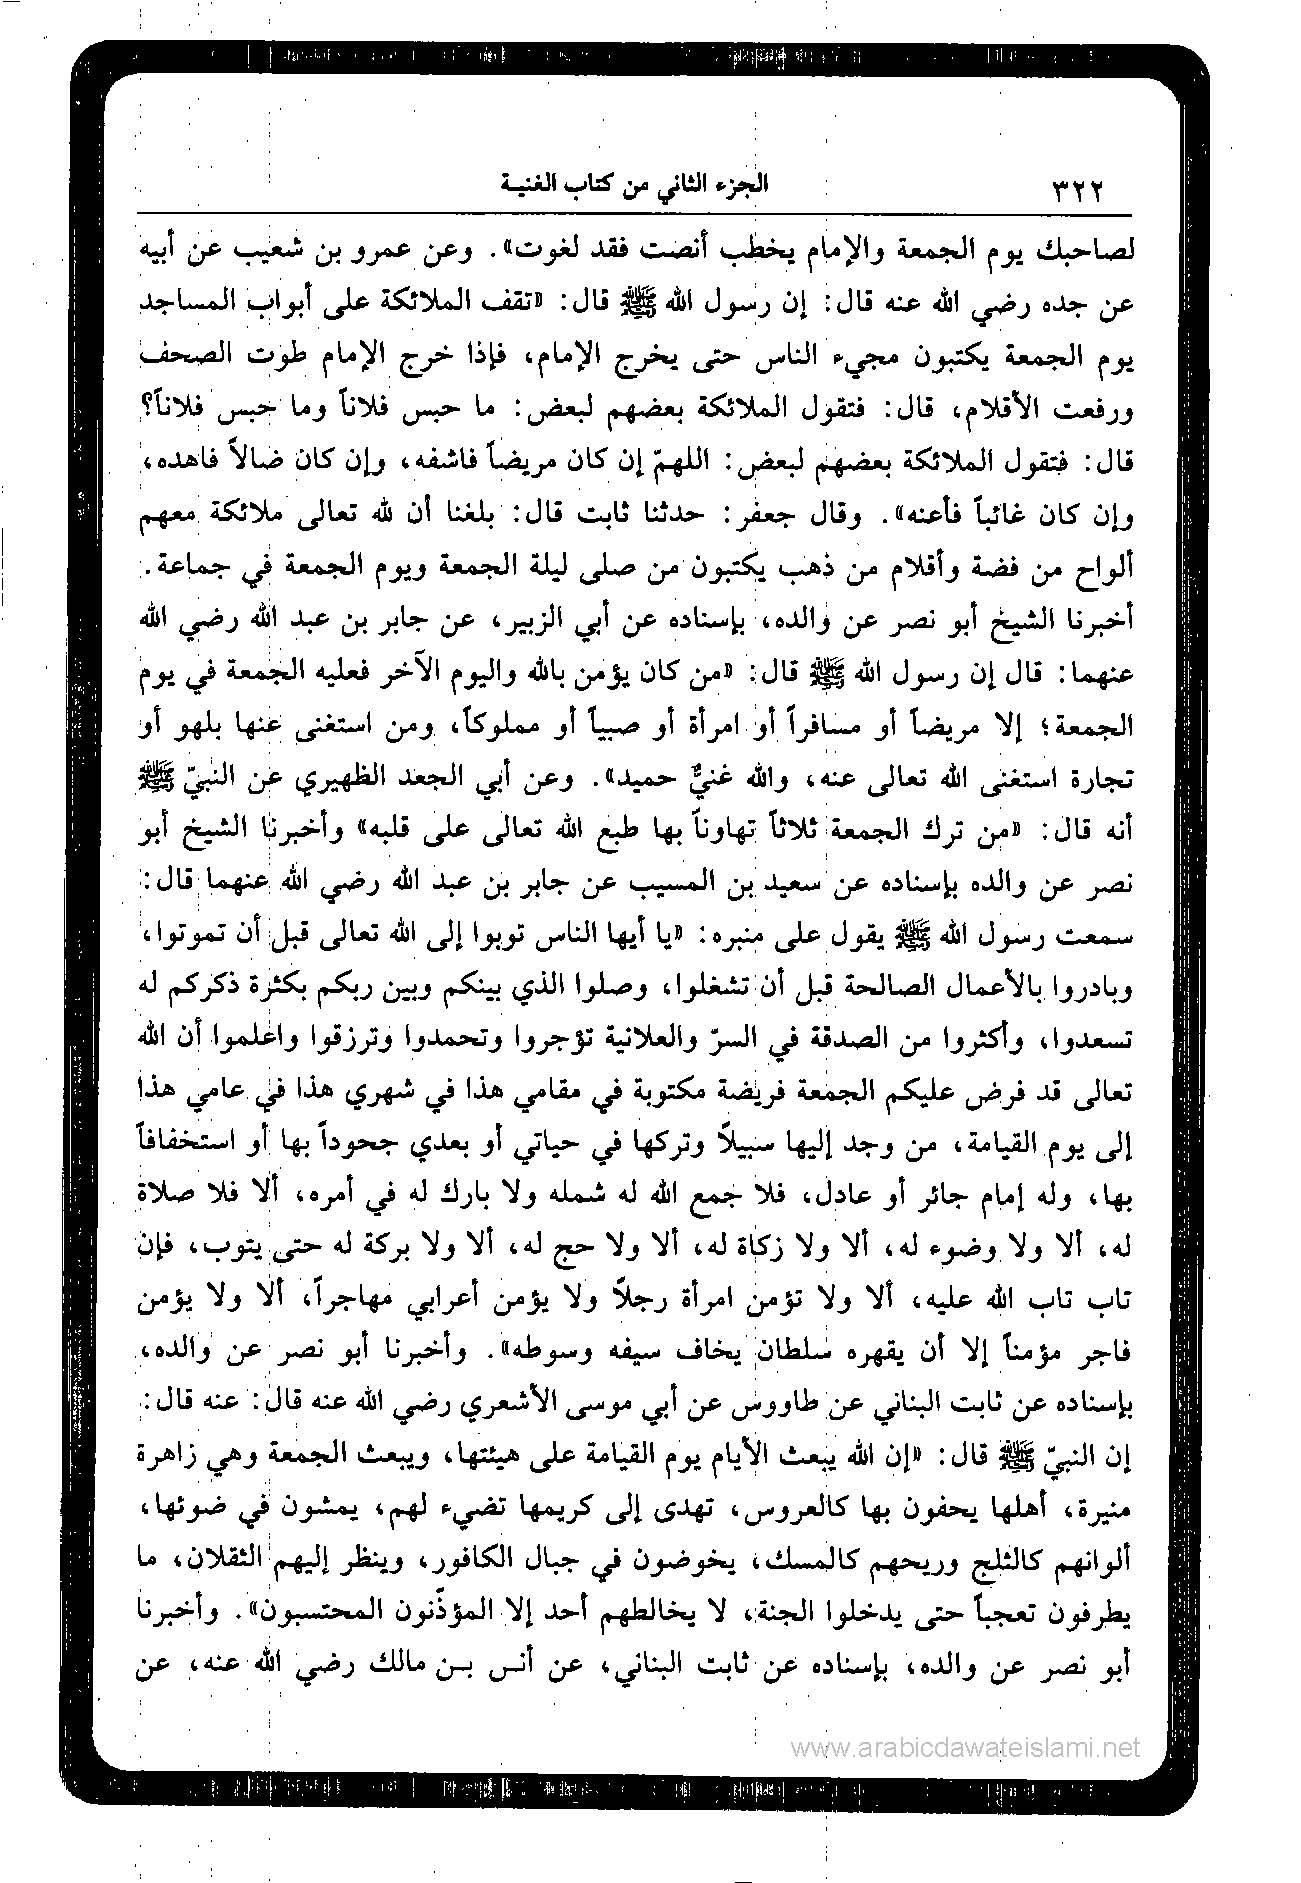 ٣٢٢ الجزء الثاني من كتاب الغنية
لصاحبك يوم الجمعة والإمام يخطب أنصت فقد لغوت». وعن عمرو بن شعيب عن أبيه
عن جده رضي الله عنه قال: إن رسول الله ﷺ قال: «تقف الملائكة على أبواب المساجد
يوم الجمعة يكتبون مجيء الناس حتى يخرج الإمام، فإذا خرج الإمام طوت الصحف
ورفعت الأقلام، قال: فتقول الملائكة بعضهم لبعض: ما حبس فلاناً وما حبس فلاناً؟
قال: فتقول الملائكة بعضهم لبعض: اللهمّ إن كان مريضاً فاشفه، وإن كان ضالاً فاهده،
وإن كان غائباً فأعنه». وقال جعفر: حدثنا ثابت قال: بلغنا أن لله تعالى ملائكة معهم
ألواح من فضة وأقلام من ذهب يكتبون من صلى ليلة الجمعة ويوم الجمعة في جماعة.
أخبرنا الشيخ أبو نصر عن والده، بإسناده عن أبي الزبير، عن جابر بن عبد الله رضي الله
عنهما: قال إن رسول الله ﷺ قال: «من كان يؤمن بالله واليوم الآخر فعليه الجمعة في يوم
الجمعة؛ إلا مريضاً أو مسافراً أو امرأة أو صبياً أو مملوكاً، ومن استغنى عنها بلهو أو
تجارة استغنى الله تعالى عنه، والله غنيٌّ حميد». وعن أبي الجعد الظهيري عن النبيّ ﷺ
أنه قال: «من ترك الجمعة ثلاثاً تهاوناً بها طبع الله تعالى على قلبه» وأخبرنا الشيخ أبو
نصر عن والده بإسناده عن سعيد بن المسيب عن جابر بن عبد الله رضي الله عنهما قال:
سمعت رسول الله ﷺ يقول على منبره: «يا أيها الناس توبوا إلى الله تعالى قبل أن تموتوا،
وبادروا بالأعمال الصالحة قبل أن تشغلوا، وصلوا الذي بينكم وبين ربكم بكثرة ذكركم له
تسعدوا، وأكثروا من الصدقة في السرّ والعلانية تؤجروا وتحمدوا وترزقوا واعلموا أن الله
تعالى قد فرض عليكم الجمعة فريضة مكتوبة في مقامي هذا في شهري هذا في عامي هذا
إلى يوم القيامة، من وجد إليها سبيلاً وتركها في حياتي أو بعدي جحوداً بها أو استخفافاً
بها، وله إمام جائر أو عادل، فلا جمع الله له شمله ولا بارك له في أمره، ألا فلا صلاة
له، ألا ولا وضوء له، ألا ولا زكاة له، ألا ولا حج له، ألا ولا بركة له حتى يتوب، فإن
تاب تاب الله عليه، ألا ولا تؤمن امرأة رجلاً ولا يؤمن أعرابي مهاجراً، ألا ولا يؤمن
فاجر مؤمناً إلا أن يقهره سلطان يخاف سيفه وسوطه». وأخبرنا أبو نصر عن والده،
بإسناده عن ثابت البناني عن طاووس عن أبي موسى الأشعري رضي الله عنه قال: عنه قال:
إن النبيّ ﷺ قال: «إن الله يبعث الأيام يوم القيامة على هيئتها، ويبعث الجمعة وهي زاهرة
منيرة، أهلها يحفون بها كالعروس، تهدى إلى كريمها تضيء لهم، يمشون في ضوئها،
ألوانهم كالثلج وريحهم كالمسك، يخوضون في جبال الكافور، وينظر إليهم الثقلان، ما
يطرفون تعجباً حتى يدخلوا الجنة، لا يخالطهم أحد إلا المؤذّنون المحتسبون». وأخبرنا
أبو نصر عن والده، بإسناده عن ثابت البناني، عن أنس بن مالك رضي الله عنه، عن
www.arabicdawateislami.net